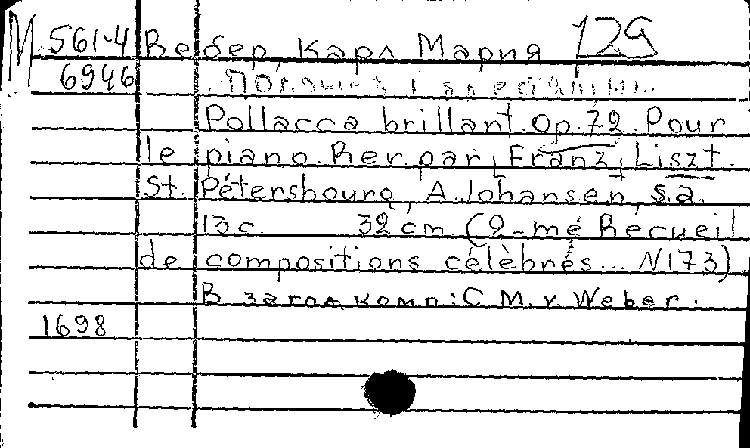 М 561-4 Вебер, Карл Мария 129
6946
Pollacca brillant. Op. 72. Pour
le piano. Rev. par Franz Liszt.
St. Pétersbourg, A. Johansen, s.a.
13 c. 32 cm (2-mé Recueil
de compositions célèbnés... N173)
В загол комп: C. M. v. Weber.
1698